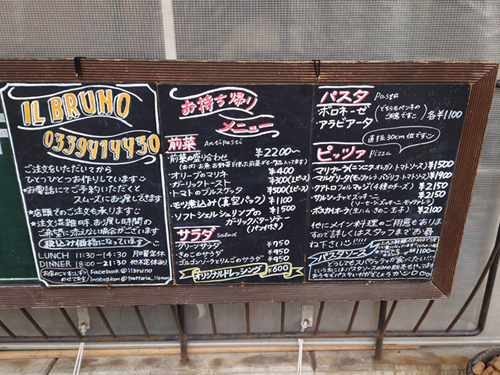 IL BRUNO
0339414430
ご注文をいただいてから
ひとつひとつお作りしています
お電話にてご予約いただくと
スムーズにお渡しできます
店頭でもご注文も承ります
ご注文混雑の時、お渡し時間の
ご希望に添えない場合がございます
税込み価格になっています
LUNCH 11:30-14:30 月曜定休日
DINNER 18:00-21:30 他不定休あり
Facebook @ilbruno
Instagram @trattoria_ilbruno
お持ち帰り
メニュー
前菜 Antipasti
・前菜の盛り合わせ ¥2200～
・オリーブのマリネ ¥400
・ガーリックトースト ¥300(1ピース)
・トマトのブルスケッタ ¥500(1ピース)
・モツ煮込み(真空パック) ¥1100
・ソフトシェルシュリンプの ¥1500
ガーリックバターソテー
(パン付き)
サラダ salad
グリーンサラダ ¥750
きのこのサラダ ¥950
ゴルゴンゾーラとりんごのサラダ ¥950
オリジナルドレッシング ¥600
パスタ Pasta
ボロネーゼ
アラビアータ 各¥1100
直径30cmほどです
ピッツァ Pizza
マリナーラ(ニンニクオレガノトマトソース) ¥1500
マルゲリータ(モッツァレラバジリコトマトソース) ¥1900
クアトロフォルマッジ(4種のチーズ) ¥2150
サルシッチャとスッキーニ ¥2150
(ソーセージズッキーニモッツァレラ)
ボスカイオーラ(生ハムきのこ玉子) ¥2150
他にメイン料理のご用意も承ります
ので詳しくはスタッフまでお尋
ね下さい
パスタソース